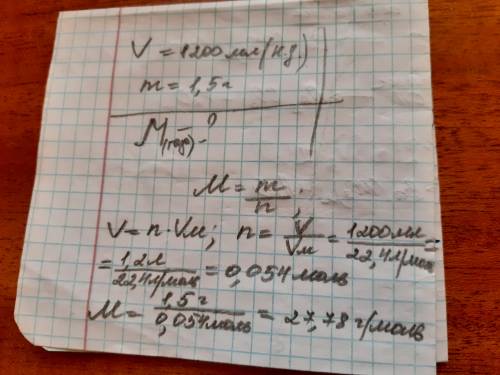 V = 1200 мл (н.у)
m = 1,5 г
M(газу) - ?
M = m/n ;
V = n · Vм; n = V/Vм = 1200 мл/22,4 л/моль =
= 1,2 л/22,4 л/моль = 0,054 моль
M = 1,5 г/0,054 моль = 27,78 г/моль